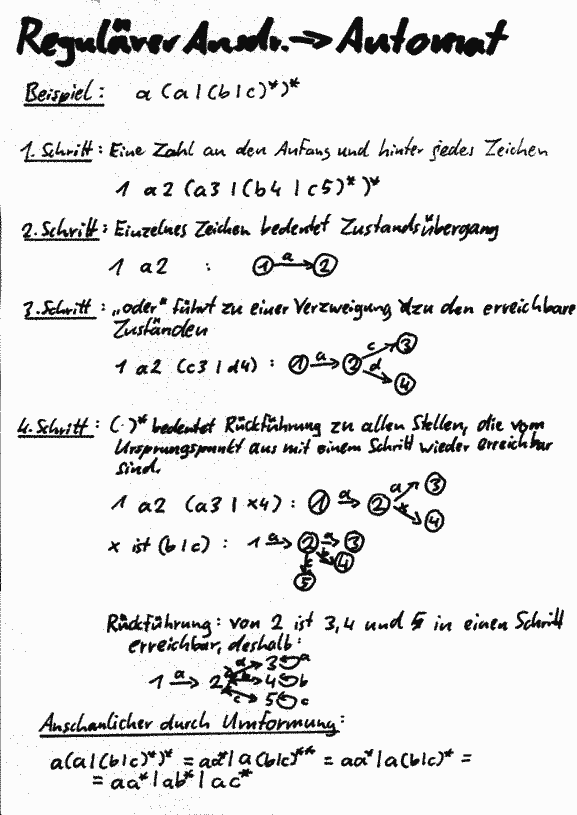 Regulärer Ausdr. → Automat
Beispiel: a (a | (b | c)*)*
1. Schritt: Eine Zahl an den Anfang und hinter jedes Zeichen
1 a2 (a3 | (b4 | c5)*)*
2. Schritt: Einzelnes Zeichen bedeutet Zustandsübergang
1 a2 : 1 a→ 2
3. Schritt: „oder“ führt zu einer Verzweigung zu den erreichbare
Zuständen
1 a2 (c3 | d4) : 1 a→ 2 c 3 d 4
4. Schritt: (·)* bedeutet Rückführung zu allen Stellen, die vom
Ursprungspunkt aus mit einem Schritt wieder erreichbar
sind.
1 a2 (a3 | x4) : 1 a→ 2 a 3 x 4
x ist (b | c) : 1 a→ 2 a→ 3 4 5
Rückführung: von 2 ist 3, 4 und 5 in einen Schritt
erreichbar, deshalb:
1 a→ 2 a 3 a b 4 b c 5 c
Anschaulicher durch Umformung:
a(a | (b | c)*)* = aa* | a(b | c)** = aa* | a(b | c)* =
= aa* | ab* | ac*